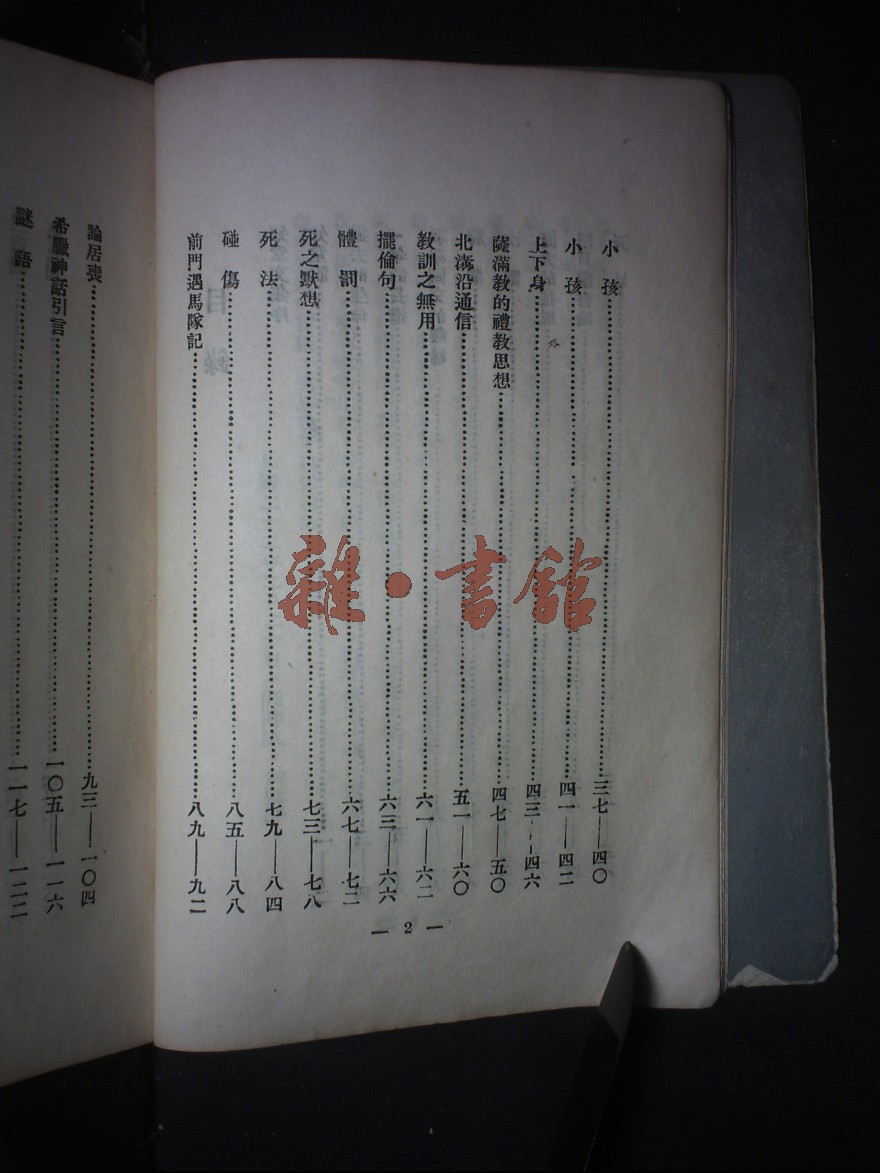 小孩……三七—四〇
小孩……四一—四二
上下身……四三—四六
薩滿教的禮教思想……四七—五〇
北溝沿通信……五一—六〇
教訓之無用……六一—六二
擺倫句……六三—六六
體罰……六七—七二
死之默想……七三—七八
死法……七九—八四
碰傷……八五—八八
前門遇馬隊記……八九—九二
— 2 —
論居喪……九三—一〇四
希臘神話引言……一〇五—一一六
謎語……一一七—一二二
雜·書館